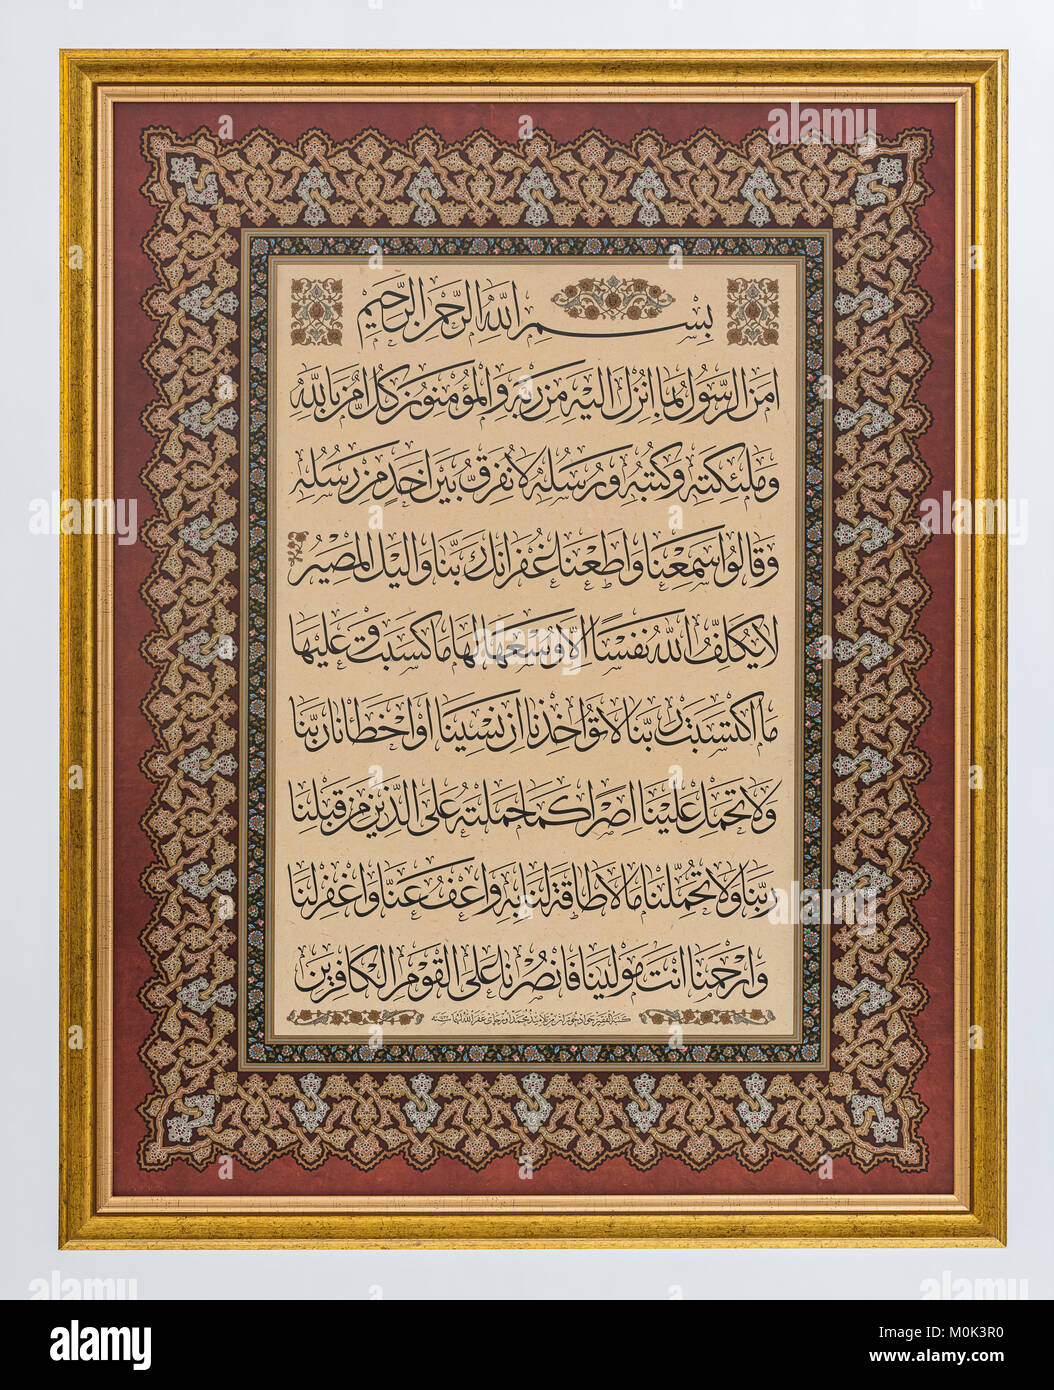 بسم الله الرحمن الرحيم
امن الرسول بما انزل اليه من ربه والمؤمنون كل امن بالله
وملئكته وكتبه ورسله لا نفرق بين احد من رسله
وقالوا سمعنا واطعنا غفرانك ربنا واليك المصير
لا يكلف الله نفسا الا وسعها لها ما كسبت وعليها
ما اكتسبت ربنا لا تؤاخذنا ان نسينا او اخطانا ربنا
ولا تحمل علينا اصرا كما حملته على الذين من قبلنا
ربنا ولا تحملنا ما لا طاقة لنا به واعف عنا واغفر لنا
وارحمنا انت مولينا فانصرنا على القوم الكافرين
alamy
Image ID: M0K3R0
www.alamy.com